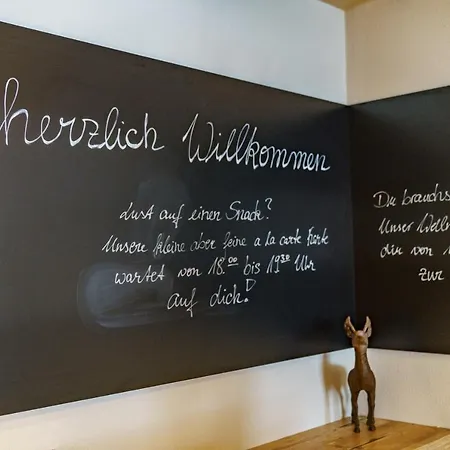 herzlich Willkommen
Lust auf einen Snack?
Unsere kleine aber feine a la carte Karte
wartet von 18⁰⁰ bis 19³⁰ Uhr
auf dich!
Du brauchs
Unser
dir von
zur